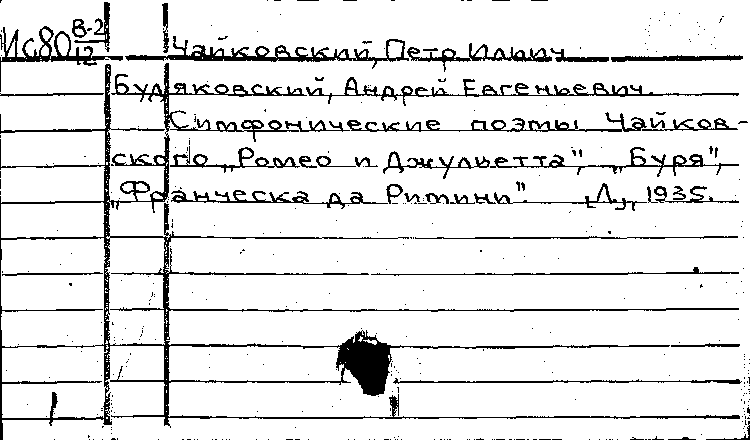 Ис80 В-2/12 Чайковский, Петр Ильич
Будяковский, Андрей Евгеньевич.
Симфонические поэмы Чайков-
ского „Ромео и Джульетта", „Буря",
„Франческа да Римини". [Л.], 1935.